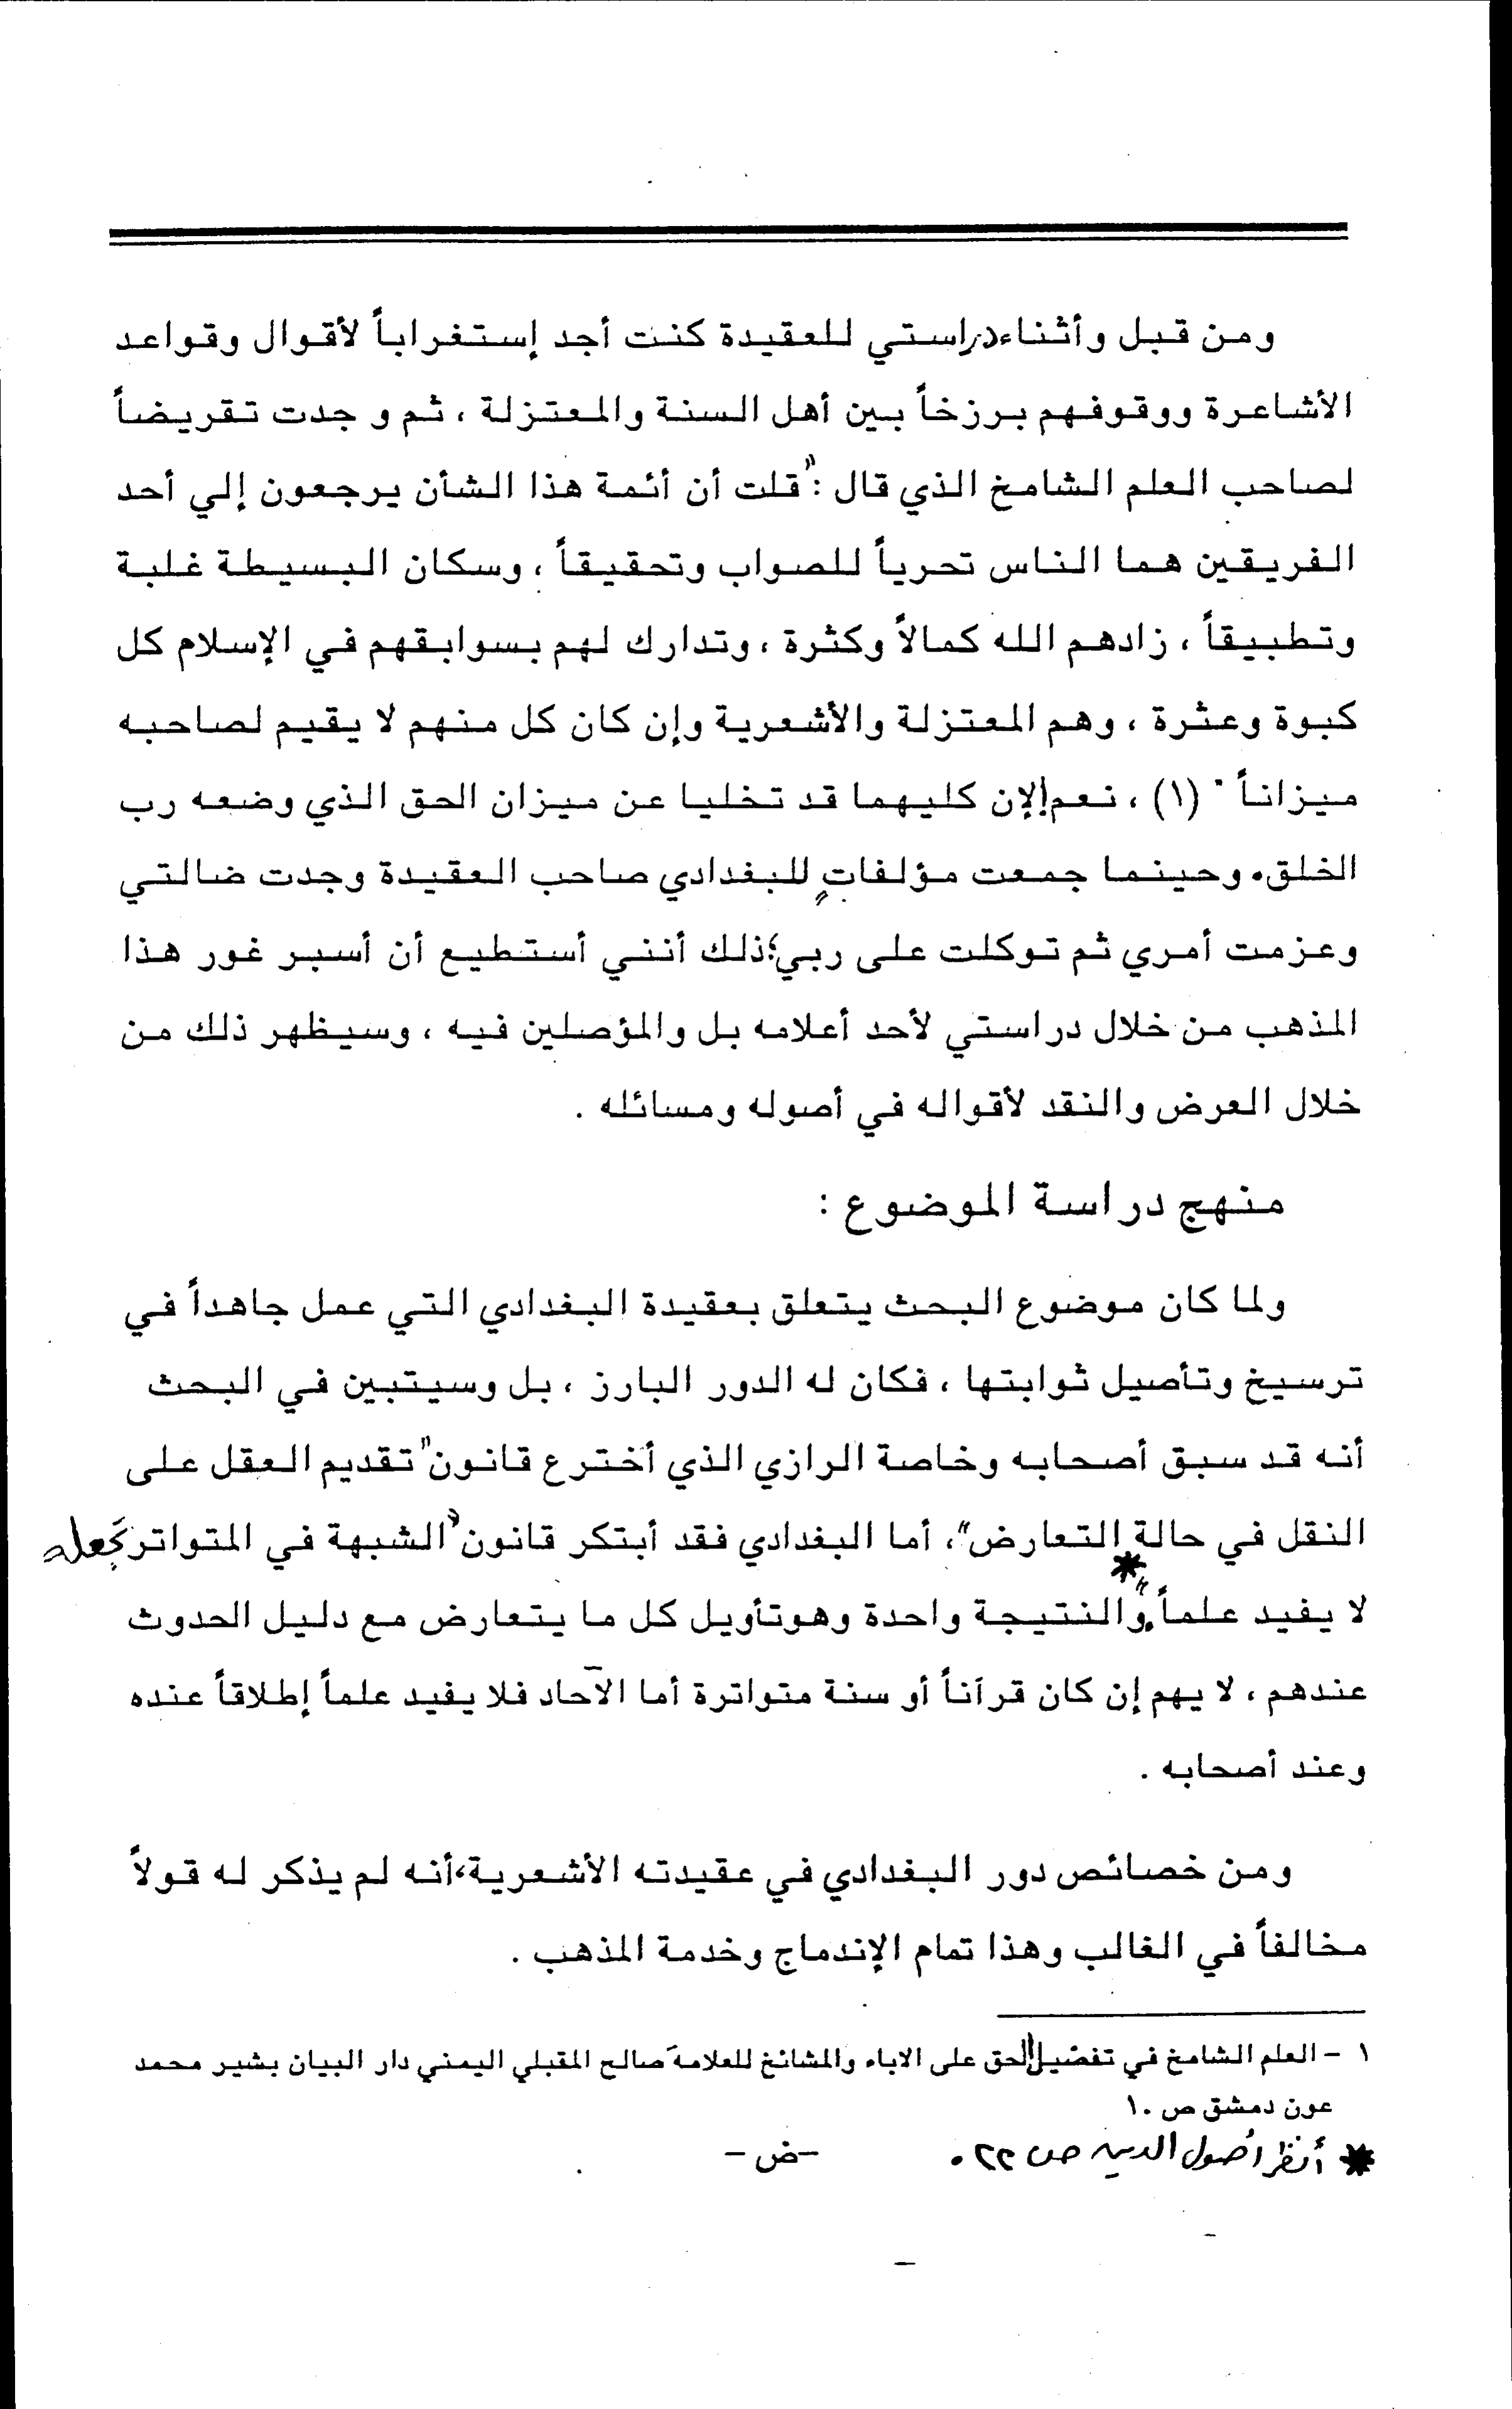 ومن قبل وأثناء دراستي للعقيدة كنت أجد إستغراباً لأقوال وقواعد
الأشاعرة ووقوفهم برزخاً بين أهل السنة والمعتزلة ، ثم و جدت تقريضاً
لصاحب العلم الشامخ الذي قال : " قلت أن أئمة هذا الشأن يرجعون إلي أحد
الفريقين هما الناس تحرياً للصواب وتحقيقاً ، وسكان البسيطة غلبة
وتطبيقاً ، زادهم الله كمالاً وكثرة ، وتدارك لهم بسوابقهم في الإسلام كل
كبوة وعثرة ، وهم المعتزلة والأشعرية وإن كان كل منهم لا يقيم لصاحبه
ميزاناً " (١) ، نعم! لإن كليهما قد تخليا عن ميزان الحق الذي وضعه رب
الخلق. وحينما جمعت مؤلفاتٍ للبغدادي صاحب العقيدة وجدت ضالتي
وعزمت أمري ثم توكلت على ربي؛ ذلك أنني أستطيع أن أسبر غور هذا
المذهب من خلال دراستي لأحد أعلامه بل والمؤصلين فيه ، وسيظهر ذلك من
خلال العرض والنقد لأقواله في أصوله ومسائله .
منهج دراسة الموضوع :
ولما كان موضوع البحث يتعلق بعقيدة البغدادي التي عمل جاهداً في
ترسيخ وتأصيل ثوابتها ، فكان له الدور البارز ، بل وسيتبين في البحث
أنه قد سبق أصحابه وخاصة الرازي الذي أخترع قانون "تقديم العقل على
النقل في حالة التعارض"، أما البغدادي فقد أبتكر قانون "الشبهة في المتواتر تجعله
لا يفيد علماً"* والنتيجة واحدة وهوتأويل كل ما يتعارض مع دليل الحدوث
عندهم ، لا يهم إن كان قرآناً أو سنة متواترة أما الآحاد فلا يفيد علماً إطلاقاً عنده
وعند أصحابه .
ومن خصائص دور البغدادي في عقيدته الأشعرية، أنه لم يذكر له قولاً
مخالفاً في الغالب وهذا تمام الإندماج وخدمة المذهب .
١ - العلم الشامخ في تفضيل الحق على الاباء والمشائخ للعلامة صالح المقبلي اليمني دار البيان بشير محمد
عون دمشق ص ١٠
* أنظر أصول الدين ص ٢٢ .
-ض -